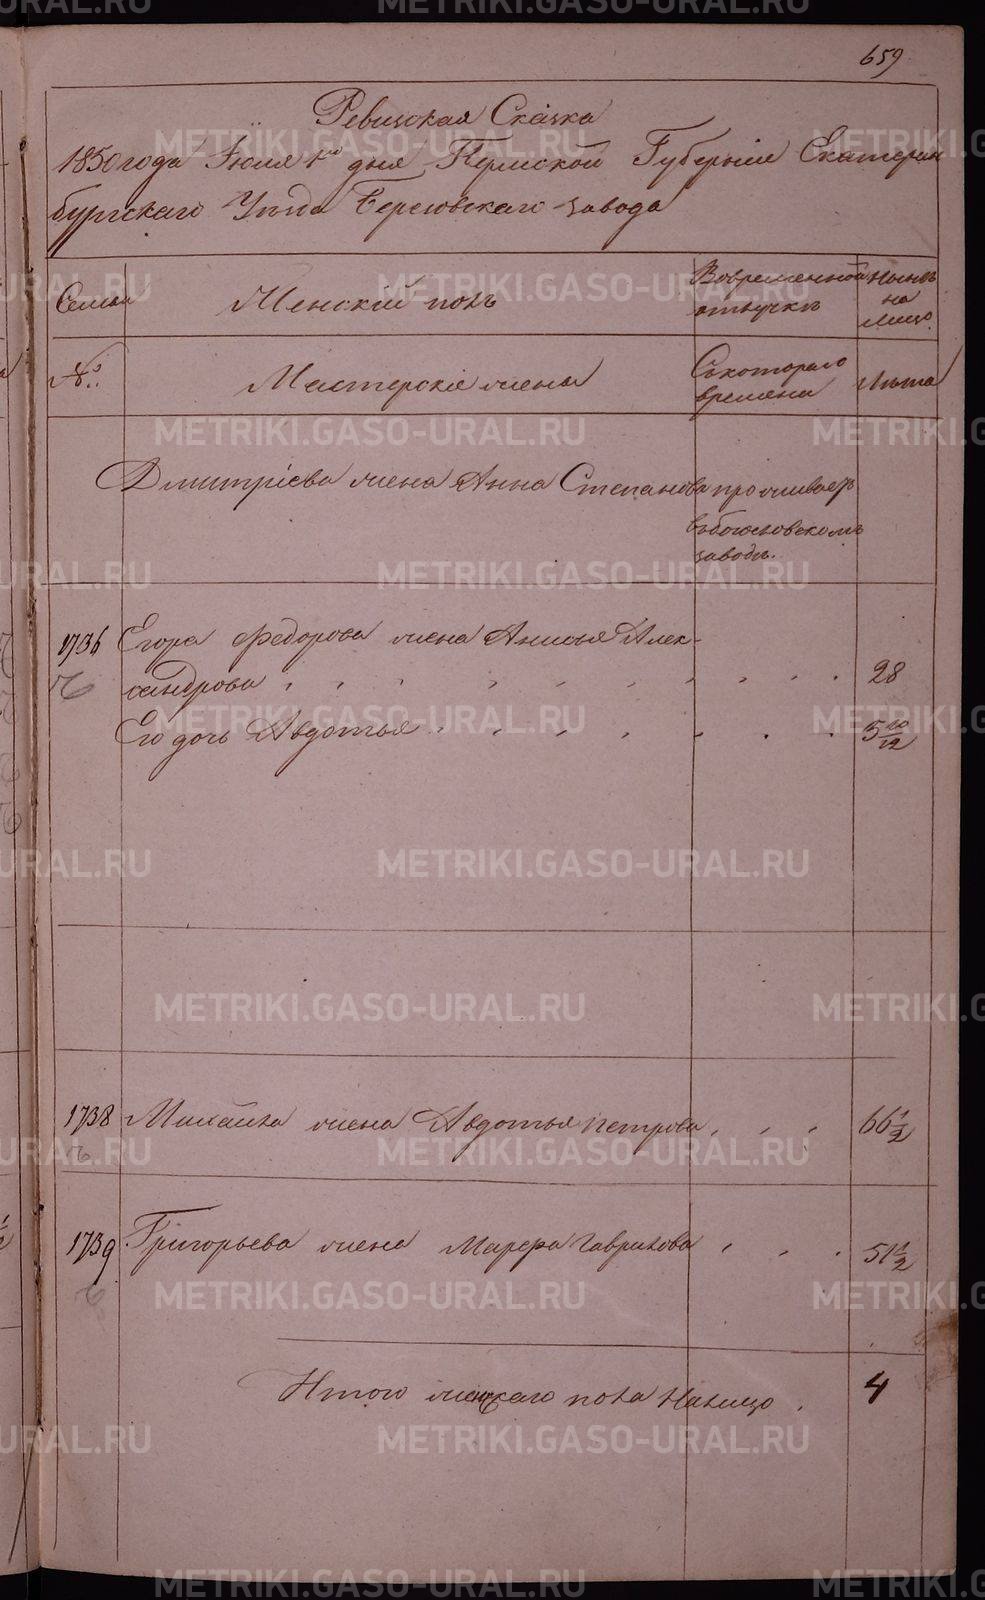 659
Ревизская Сказка
1850 года Іюля 1го дня Пермской Губерніи Екатерин
бургскаго Уѣзда Березовскаго завода
Семьи
Женскій полъ
Вовременной
отлучкѣ
Нынѣ
на
Лицо
№.
Мастерскіе жены
Скотораго
времени
Лѣта
Дмитріева жена Анна Степанова проживаетъ
въ
заводѣ.
1736 Егора Федорова жена Анисья Алек-
сандрова 28
Его дочь Авдотья 5 10/12
1738 Михайла жена Авдотья Петрова 66 1/2
1739 Григорьева жена Марфа Гаврилова 51 1/2
Итого женскаго пола налицо 4
METRIKI.GASO-URAL.RU